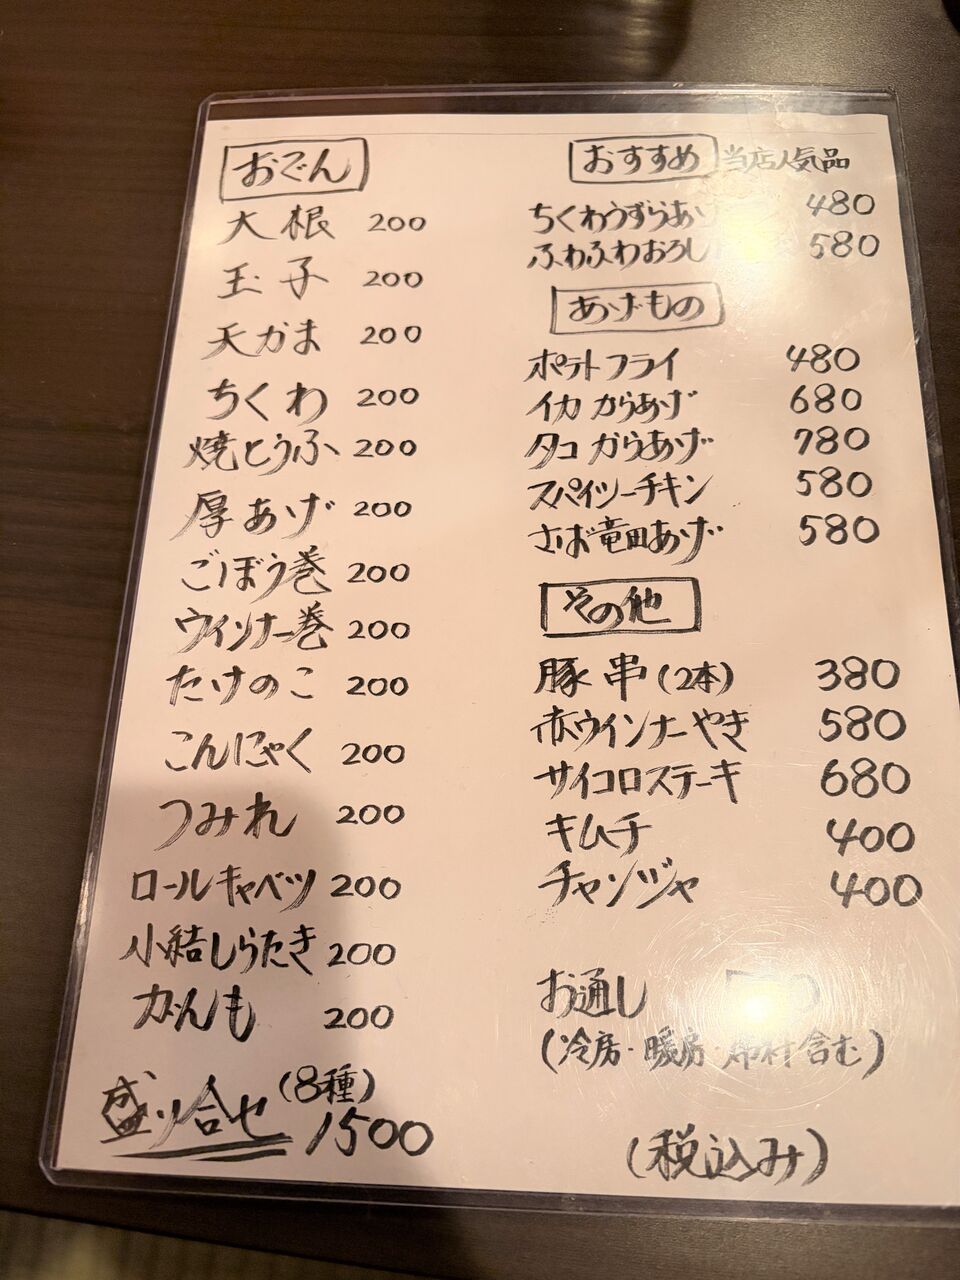 おでん
大根 200
玉子 200
天かま 200
ちくわ 200
焼とうふ 200
厚あげ 200
ごぼう巻 200
ウインナー巻 200
たけのこ 200
こんにゃく 200
つみれ 200
ロールキャベツ 200
小結しらたき 200
がんも 200
盛り合せ (8種) 1500
おすすめ 当店人気品
ちくわうずらあげ 480
ふわふわおろし 580
あげもの
ポテトフライ 480
イカからあげ 680
タコからあげ 780
スパイシーチキン 580
さば竜田あげ 580
その他
豚串(2本) 380
赤ウインナーやき 580
サイコロステーキ 680
キムチ 400
チャンジャ 400
お通し
(冷房・暖房・席料含む)
(税込み)